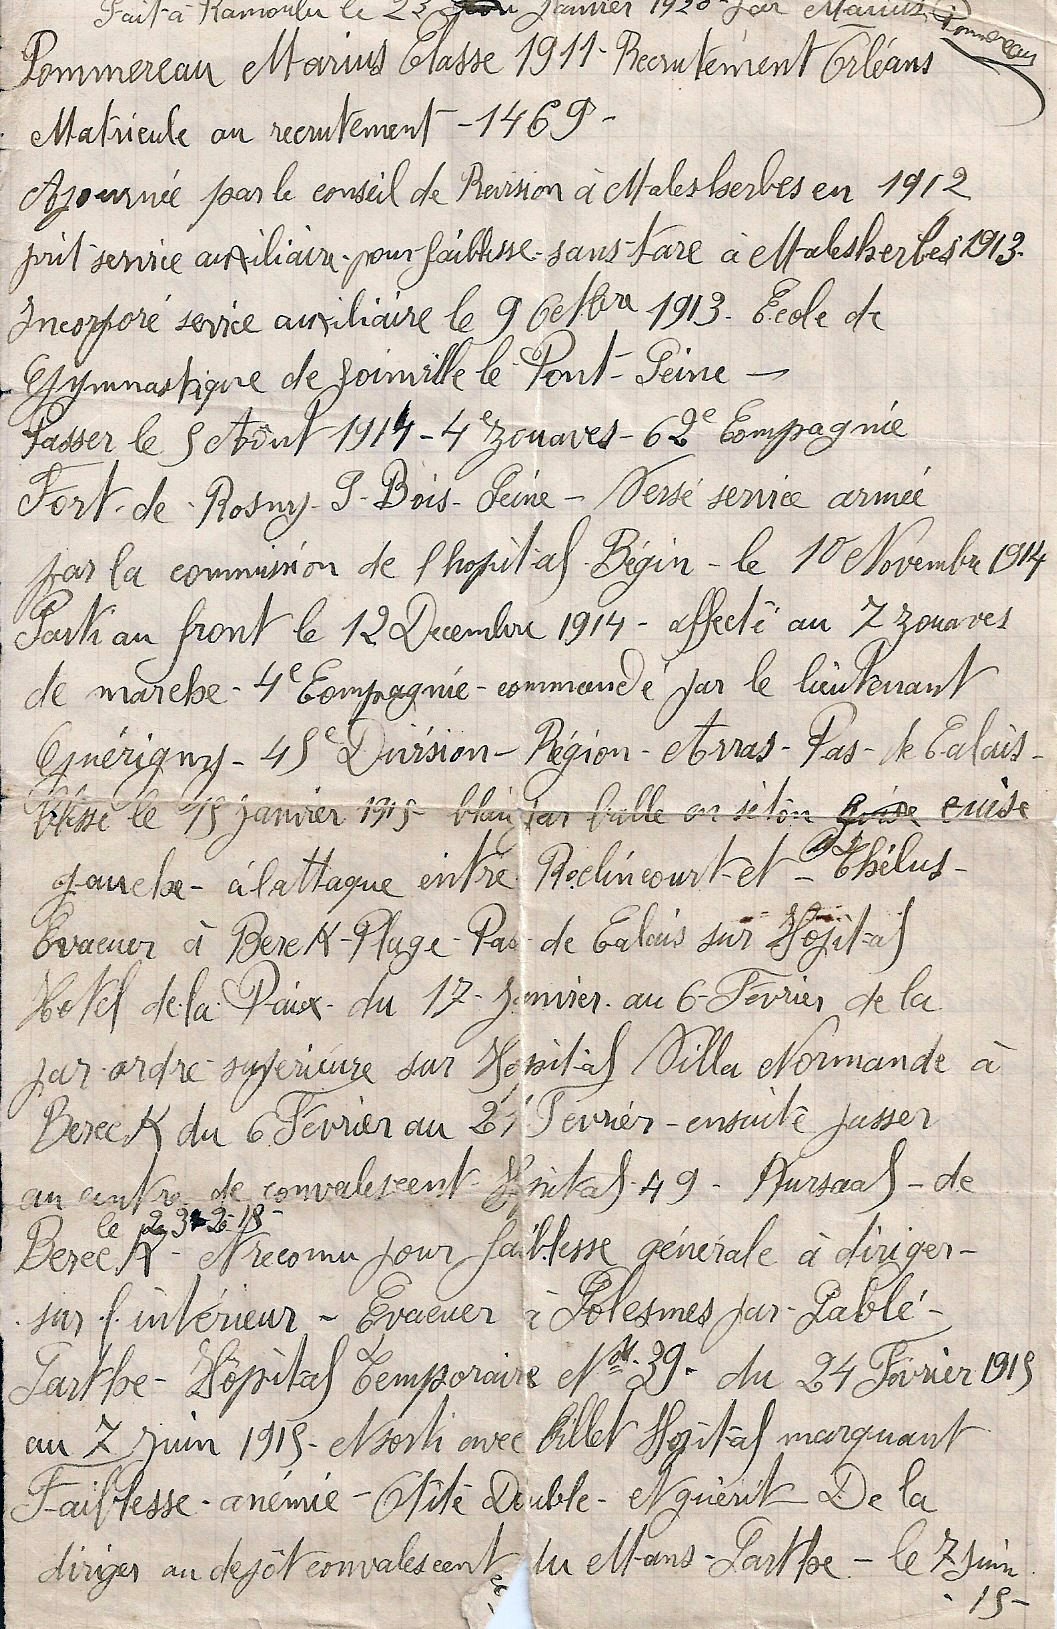 Fait à Ramoulu le 23 Janvier 1920 par Marius Pommereau
Pommereau Marius Classe 1911 - Recrutement Orléans
Matricule au recrutement - 1469 -
Ajournée par le conseil de Revision à Malesherbes en 1912
prit service auxiliaire pour faiblesse sans tare à Malesherbes 1913.
Incorporé service auxiliaire le 9 Octbre 1913. Ecole de
Gymnastique de Joinville le Pont - Seine -
Passer le 5 Août 1914 - 4e zouaves - 62e Compagnie
Fort de Rosny - S - Bois - Seine - Versé service armée
par la commission de l hopital Bégin - le 10 Novembre 1914
Parti au front le 12 Decembre 1914 - affecté au 7 zouaves
de marche - 4e Compagnie - commandé par le lieutenant
Guérigny - 45e Division - Région - Arras - Pas - de Calais -
Blissé le 15 janvier 1915 - par balle en séton cuise
gauche - à l attaque entre Roclincourt et - Thélus -
Evacuer à Berck - Plage - Pas - de Calais sur Hopital
Hotel de la Paix - du 17 - Janvier au 6 - Février de la
par ordre superieure sur Hopital Villa Normande à
Berck du 6 Février au Fevrier - ensuite passer
au centre de convalescent Hopital 49 - Kursaal - de
le 23-2-15 -
Berck - et reconnu pour faiblesse générale à diriger -
sur l intérieur - Evacuer à Solesmes par - Sablé -
Sarthe - Hôpital Temporaire No 39 - du 24 Février 1915
au 7 Juin 1915 - et sorti avec billet Hopital marquant
Faiblesse - anémie - Otite Double - et guérit De la
diriger au depôt convalescent du Mans - Sarthe - le 7 Juin
- 15 -